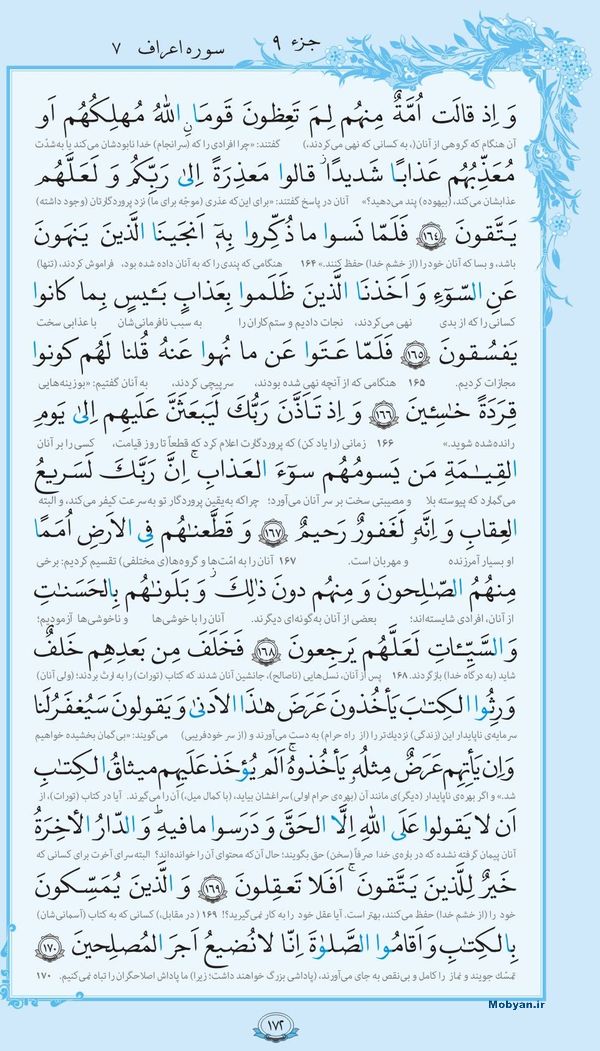 جزء ۹
سوره اعراف ۷
وَ اِذ قالَت اُمَّةٌ مِنهُم لِمَ تَعِظونَ قَومًا نِ اللّٰهُ مُهلِكُهُم اَو
آن هنگام که گروهی از آنان(، به کسانی که نهی می‌کردند،) گفتند: «چرا افرادی را که (سرانجام) خدا نابودشان می‌کند یا به شدّت
مُعَذِّبُهُم عَذابًا شَديدًا ۖ قالوا مَعذِرَةً اِلىٰ رَبِّكُم وَ لَعَلَّهُم
عذابشان می‌کند، (بیهوده) پند می‌دهید؟» آنان در پاسخ گفتند: «برای این‌که عذری (موجّه برای ما) نزد پروردگارتان (وجود داشته)
يَتَّقونَ ﴿۱۶۴﴾ فَلَمّا نَسوا ما ذُكِّروا بِهٖٓ اَنجَينَا الَّذينَ يَنهَونَ
باشد، و بسا که آنان خود را (از خشم خدا) حفظ کنند.» ۱۶۴ هنگامی که پندی را که به آنان داده شده بود، فراموش کردند، (تنها)
عَنِ السّوٓءِ وَ اَخَذنَا الَّذينَ ظَلَموا بِعَذابٍ بَـٔيسٍ بِما كانوا
کسانی را که از بدی نهی می‌کردند، نجات دادیم و ستم‌کاران را به سبب نافرمانی‌شان با عذابی سخت
يَفسُقونَ ﴿۱۶۵﴾ فَلَمّا عَتَوا عَن ما نُهوا عَنهُ قُلنا لَهُم كونوا
مجازات کردیم. ۱۶۵ هنگامی که از آنچه نهی شده بودند، سرپیچی کردند، به آنان گفتیم: «بوزینه‌هایی
قِرَدَةً خاسِـٔينَ ﴿۱۶۶﴾ وَ اِذ تَاَذَّنَ رَبُّكَ لَيَبعَثَنَّ عَلَيهِم اِلىٰ يَومِ
رانده‌شده شوید.» ۱۶۶ زمانی (را یاد کن) که پروردگارت اعلام کرد که قطعاً تا روز قیامت، کسی را بر آنان
القِيٰمَةِ مَن يَسومُهُم سوٓءَ العَذابِ ۗ اِنَّ رَبَّكَ لَسَريعُ
می‌گمارد که پیوسته بلا و مصیبتی سخت بر سر آنان می‌آورد؛ چراکه به‌یقین پروردگار تو به‌سرعت کیفر می‌کند، و البته
العِقابِ وَ اِنَّهٗ لَغَفورٌ رَحيمٌ ﴿۱۶۷﴾ وَ قَطَّعنٰهُم فِى الاَرضِ اُمَمًا
او بسیار آمرزنده و مهربان است. ۱۶۷ آنان را به امّت‌ها و گروه‌ها(ی مختلفی) تقسیم کردیم: برخی
مِنهُمُ الصّٰلِحونَ وَ مِنهُم دونَ ذٰلِكَ ۖ وَ بَلَونٰهُم بِالحَسَنٰتِ
از آنان، افرادی شایسته‌اند؛ بعضی از آنان به‌گونه‌ای دیگرند. آنان را با خوشی‌ها و ناخوشی‌ها آزمودیم؛
وَ السَّيِّـٔاتِ لَعَلَّهُم يَرجِعونَ ﴿۱۶۸﴾ فَخَلَفَ مِن بَعدِهِم خَلفٌ
شاید (به درگاه خدا) بازگردند. ۱۶۸ پس از آنان، نسل‌هایی (ناصالح)، جانشین آنان شدند که کتاب (تورات) را به ارث بردند؛ (ولی آنان)
وَرِثُوا الكِتٰبَ يَأخُذونَ عَرَضَ هٰذَا الاَدنىٰ وَ يَقولونَ سَيُغفَرُ لَنا
سرمایه‌ی ناپایدار این (زندگی) نزدیک‌تر را (از راه حرام) به دست می‌آورند و (از سر خودفریبی) می‌گویند: «بی‌گمان بخشیده خواهیم
وَ اِن يَأتِهِم عَرَضٌ مِثلُهٗ يَأخُذوهُ ۚ اَلَم يُؤخَذ عَلَيهِم ميثاقُ الكِتٰبِ
شد.» و اگر بهره‌ی ناپایدار (دیگری) مانند آن (بهره‌ی حرام اولی) سراغشان بیاید، (با کمال میل،) آن را می‌گیرند. آیا در کتاب (تورات)، از
اَن لا يَقولوا عَلَى اللّٰهِ اِلَّا الحَقَّ وَ دَرَسوا ما فيهِ ۗ وَ الدّارُ الآخِرَةُ
آنان پیمان گرفته نشده که درباره‌ی خدا صرفاً (سخن) حق بگویند؛ حال آن‌که محتوای آن را خوانده‌اند؟ البته سرای آخرت برای کسانی که
خَيرٌ لِلَّذينَ يَتَّقونَ ۗ اَفَلا تَعقِلونَ ﴿۱۶۹﴾ وَ الَّذينَ يُمَسِّكونَ
خود را (از خشم خدا) حفظ می‌کنند، بهتر است. آیا عقل خود را به کار نمی‌گیرید؟! ۱۶۹ (در مقابل،) کسانی که به کتاب (آسمانی‌شان)
بِالكِتٰبِ وَ اَقامُوا الصَّلوٰةَ اِنّا لا نُضيعُ اَجرَ المُصلِحينَ ﴿۱۷۰﴾
تمسّک جویند و نماز را کامل و بی‌نقص به جای می‌آورند، (پاداشی بزرگ خواهند داشت؛ زیرا) ما پاداش اصلاحگران را تباه نمی‌کنیم. ۱۷۰
۱۷۲
Mobyan.ir